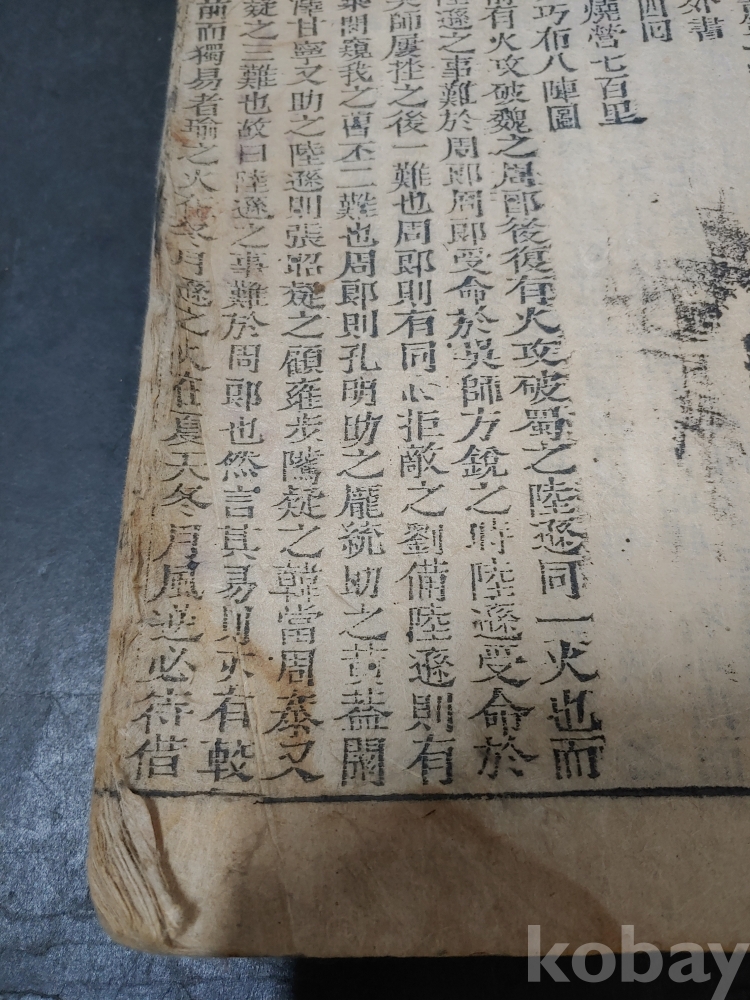 外書
四回
燒營七百里
巧布八陣圖
前有火攻破魏之周郎後復有火攻破蜀之陸遜同一火也而
陸遜之事難於周郎周郎受命於吳師方銳之時陸遜受命於
吳師屢挫之後一難也周郎則有同心拒敵之劉備陸遜則有
乘間窺我之曹丕二難也周郎則孔明助之龐統助之黃蓋闞
澤甘寧又助之陸遜則張昭疑之顧雍步隲疑之韓當周泰又
疑之三難也故曰陸遜之事難於周郎也然言其易則亦有較
前而獨易者瑜之火在冬月遜之火在夏天冬月風逆必待借
kobay